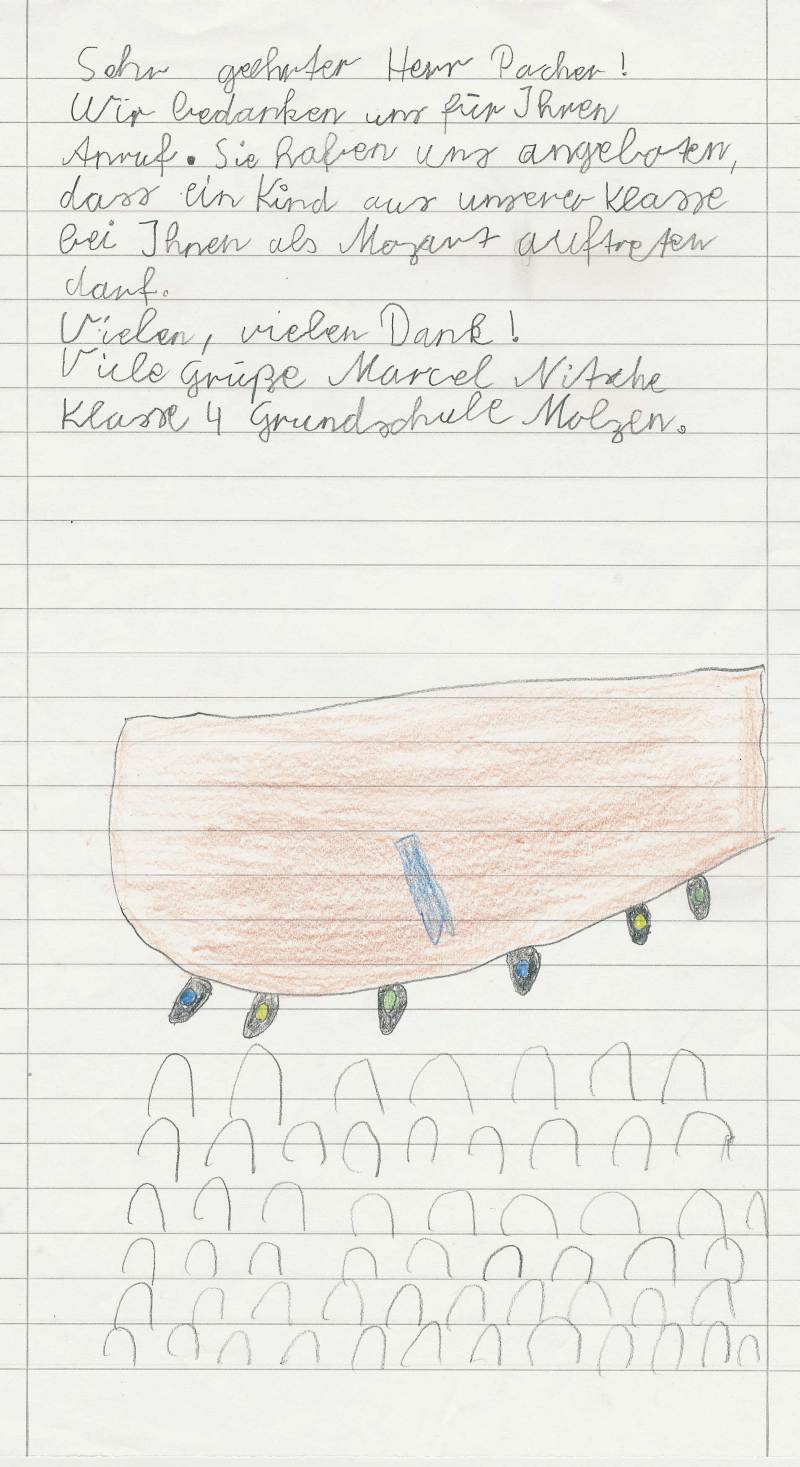 Sehr geehrter Herr Pacher!
Wir bedanken uns für Ihren
Anruf. Sie haben uns angeboten,
dass ein Kind aus unserer Klasse
bei Ihnen als Mozart auftreten
darf.
Vielen, vielen Dank!
Viele Grüße Marcel Nitsche
Klasse 4 Grundschule Molzen.